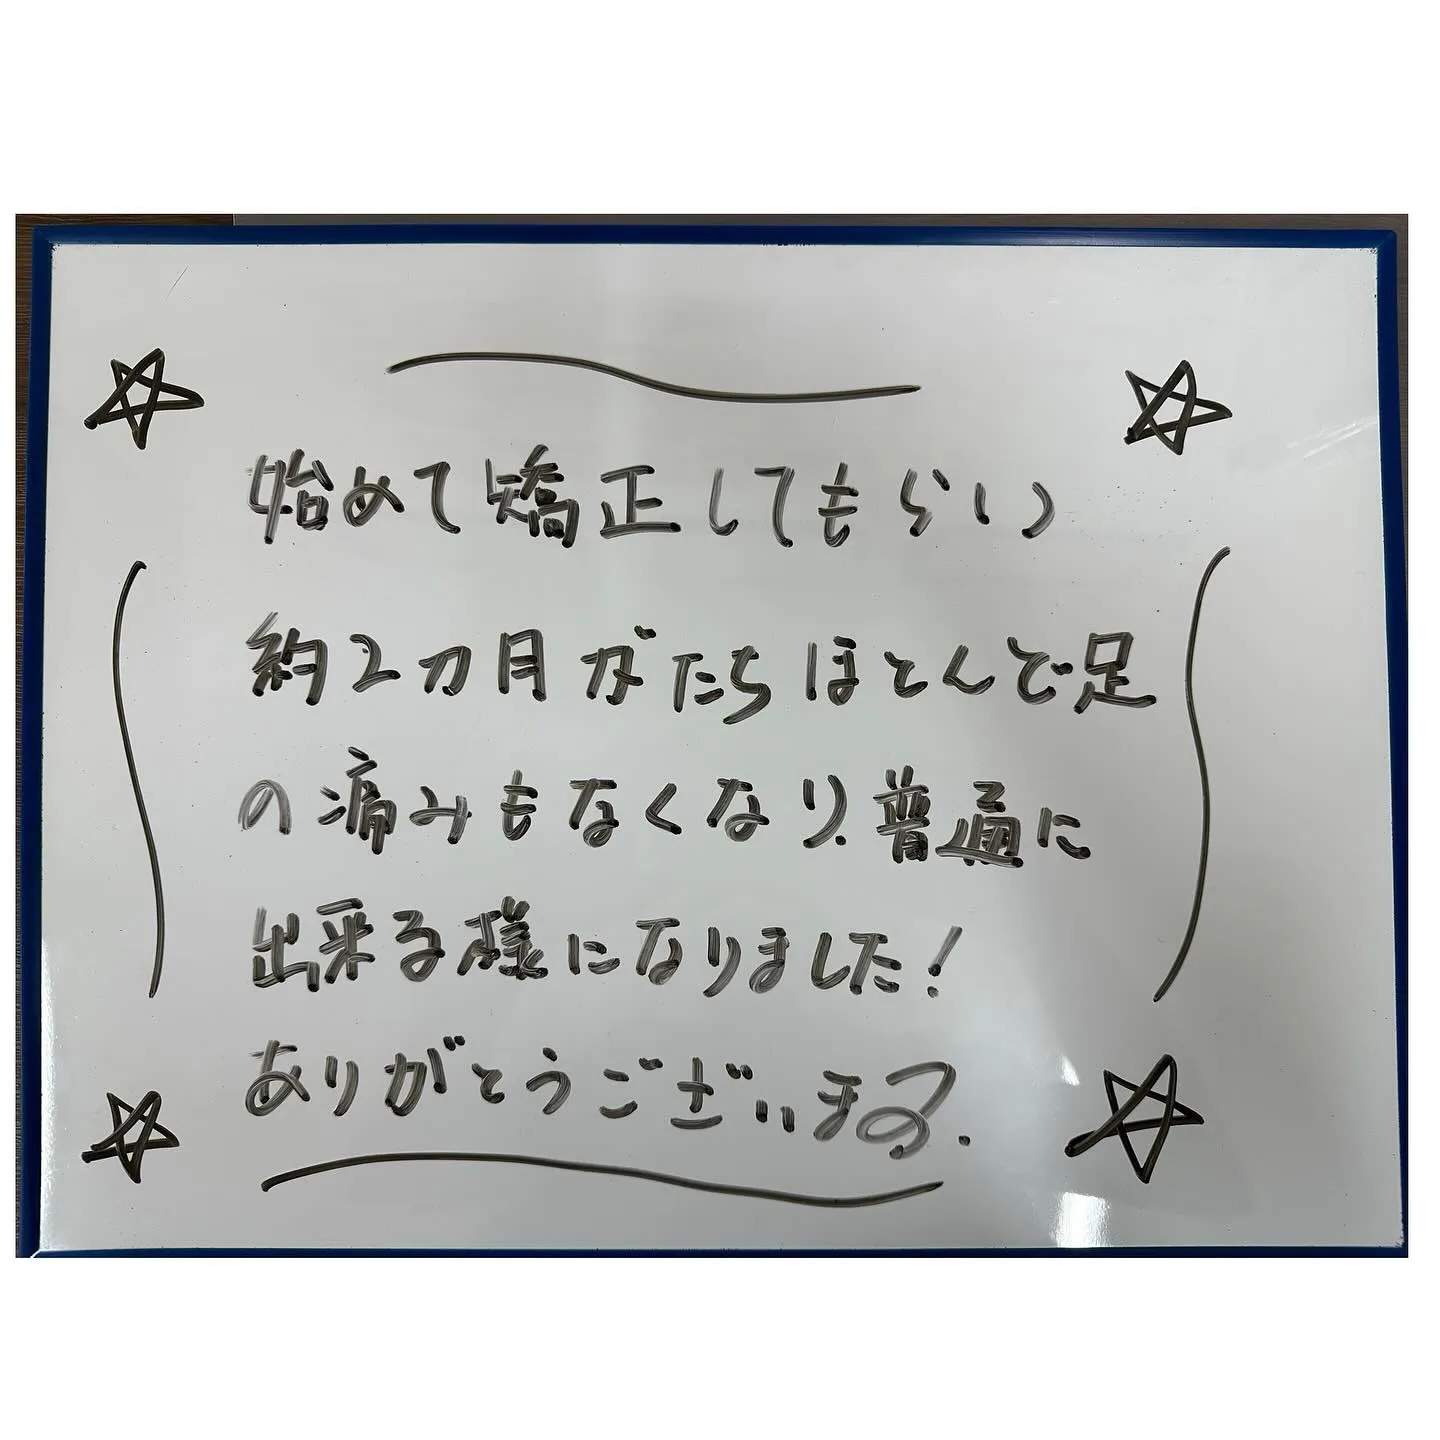 始めて矯正してもらい
約2カ月がたちほとんど足
の痛みもなくなり、普通に
出来る様になりました!
ありがとうございます.